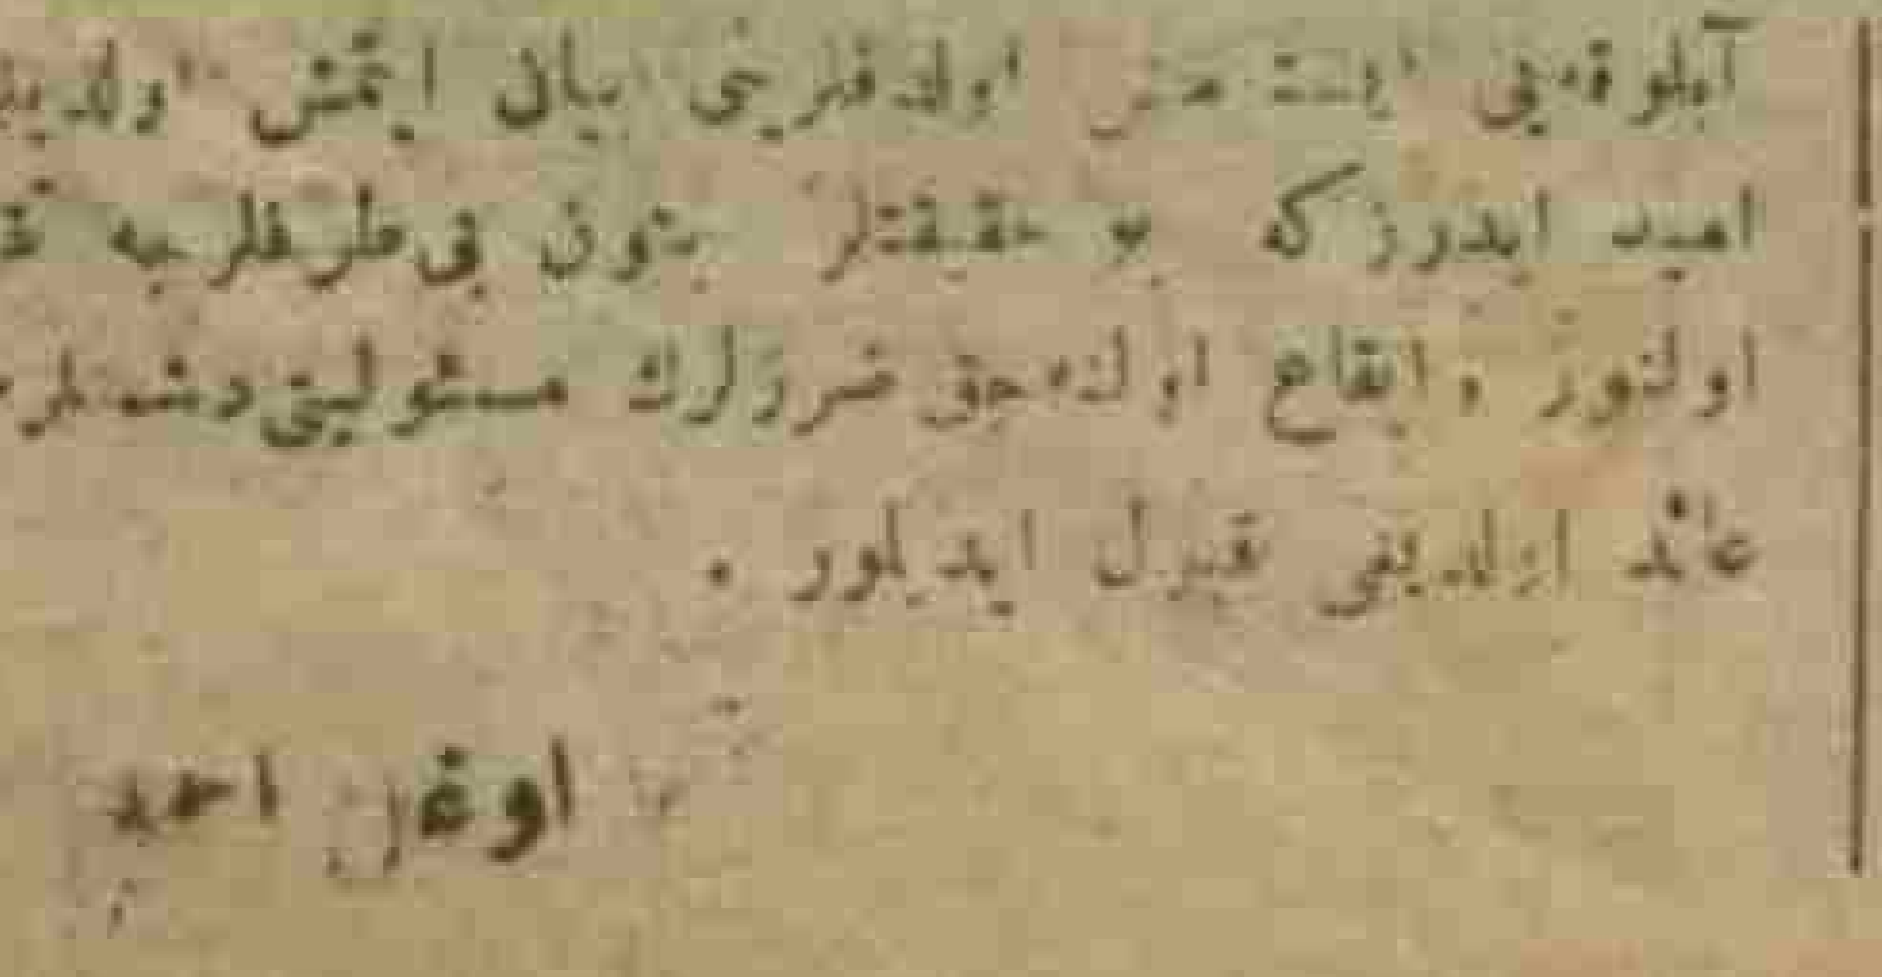 آبلوقه‌یی ایتمش اولدقلرینی بیان ایتمش اولدیغی
امید ایدرزکه بو حقیقتلر بتون بی‌طرفلرجه
اولنور . ایقاع اولنه‌جق ضررلرك مسئولیتی دشمنلره
عائد اولدیغی قبول ایدیلور .
اوغلی احمد